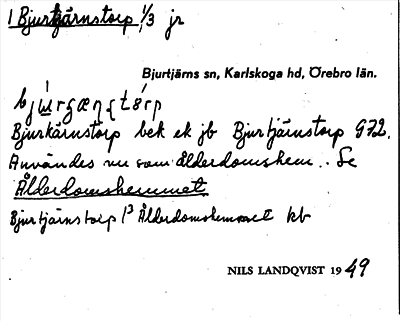 1 Bjurtjärnstorp 1/3 jr
Bjurtjärns sn, Karlskoga hd, Örebro län.
Bjurkärnstorp bek ek jb Bjurtjärnstorp G72.
Användes nu som ålderdomshem.. Se
Ålderdomshemmet
Bjurtjärnstorp 1³ Ålderdomshemmet kb
NILS LANDQVIST 1949